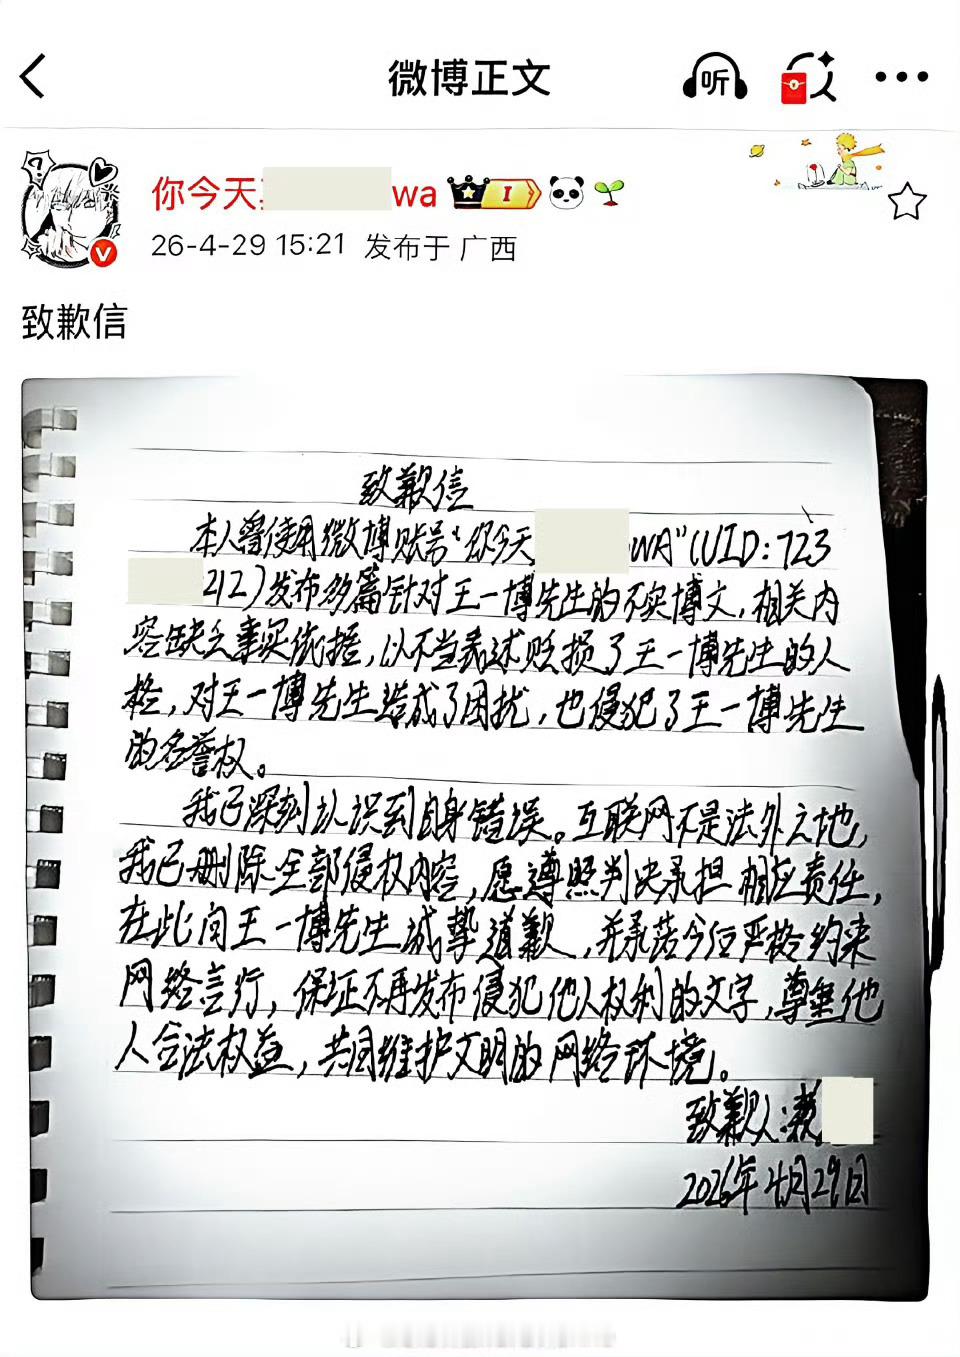 微博正文
听
你今天 wa
I
26-4-29 15:21 发布于 广西
致歉信
致歉信
本人曾使用微博账号“你今天 WA”(UID:723
212)发布多篇针对王一博先生的不实博文,相关内
容缺乏事实依据,以不当表述贬损了王一博先生的人
格,对王一博先生造成了困扰,也侵犯了王一博先生
的名誉权。
我已深刻认识到自身错误。互联网不是法外之地,
我已删除全部侵权内容,愿遵照判决承担相应责任,
在此向王一博先生诚挚道歉,并承诺今后严格约束
网络言行,保证不再发布侵犯他人权利的文字,尊重他
人合法权益,共同维护文明的网络环境。
致歉人:
2026年4月29日